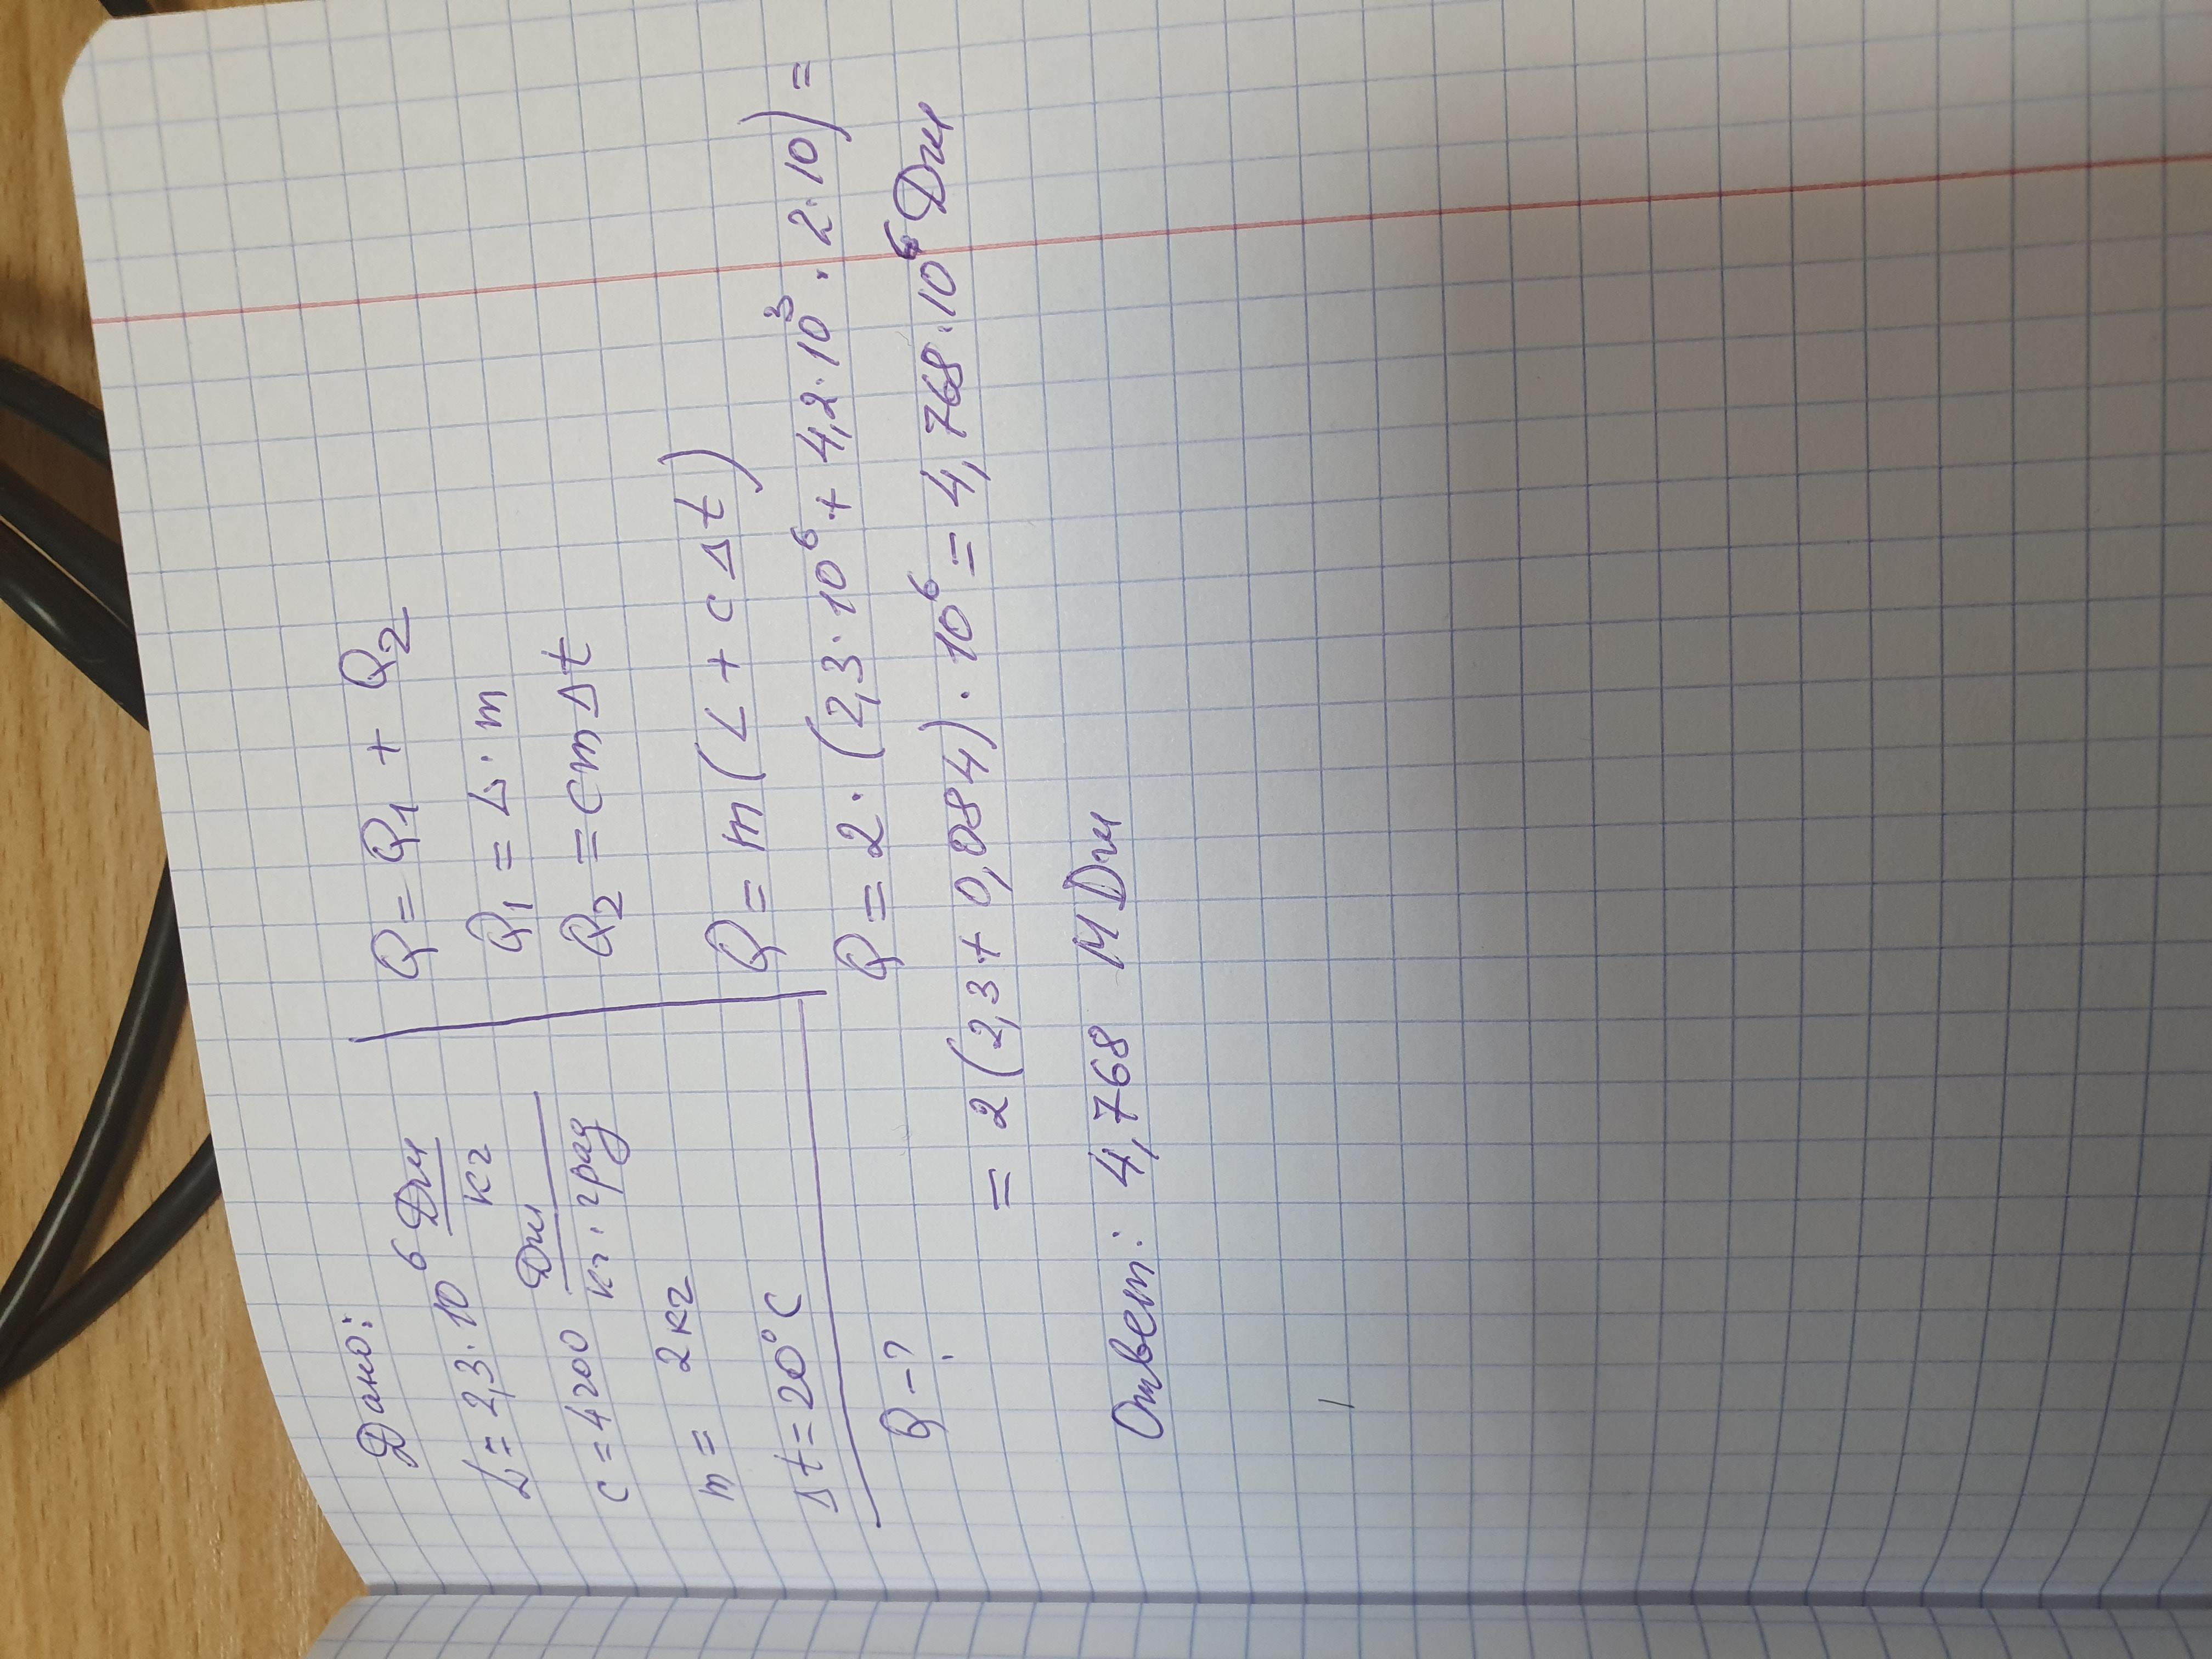 Дано:
L = 2,3·10⁶ Дж/кг
c = 4200 Дж/кг·град
m = 2 кг
Δt = 20°C
Q - ?
Q = Q₁ + Q₂
Q₁ = L·m
Q₂ = cmΔt
Q = m(L + cΔt)
Q = 2·(2,3·10⁶ + 4,2·10³·2·10) =
= 2(2,3 + 0,084)·10⁶ = 4,768·10⁶ Дж
Ответ: 4,768 МДж